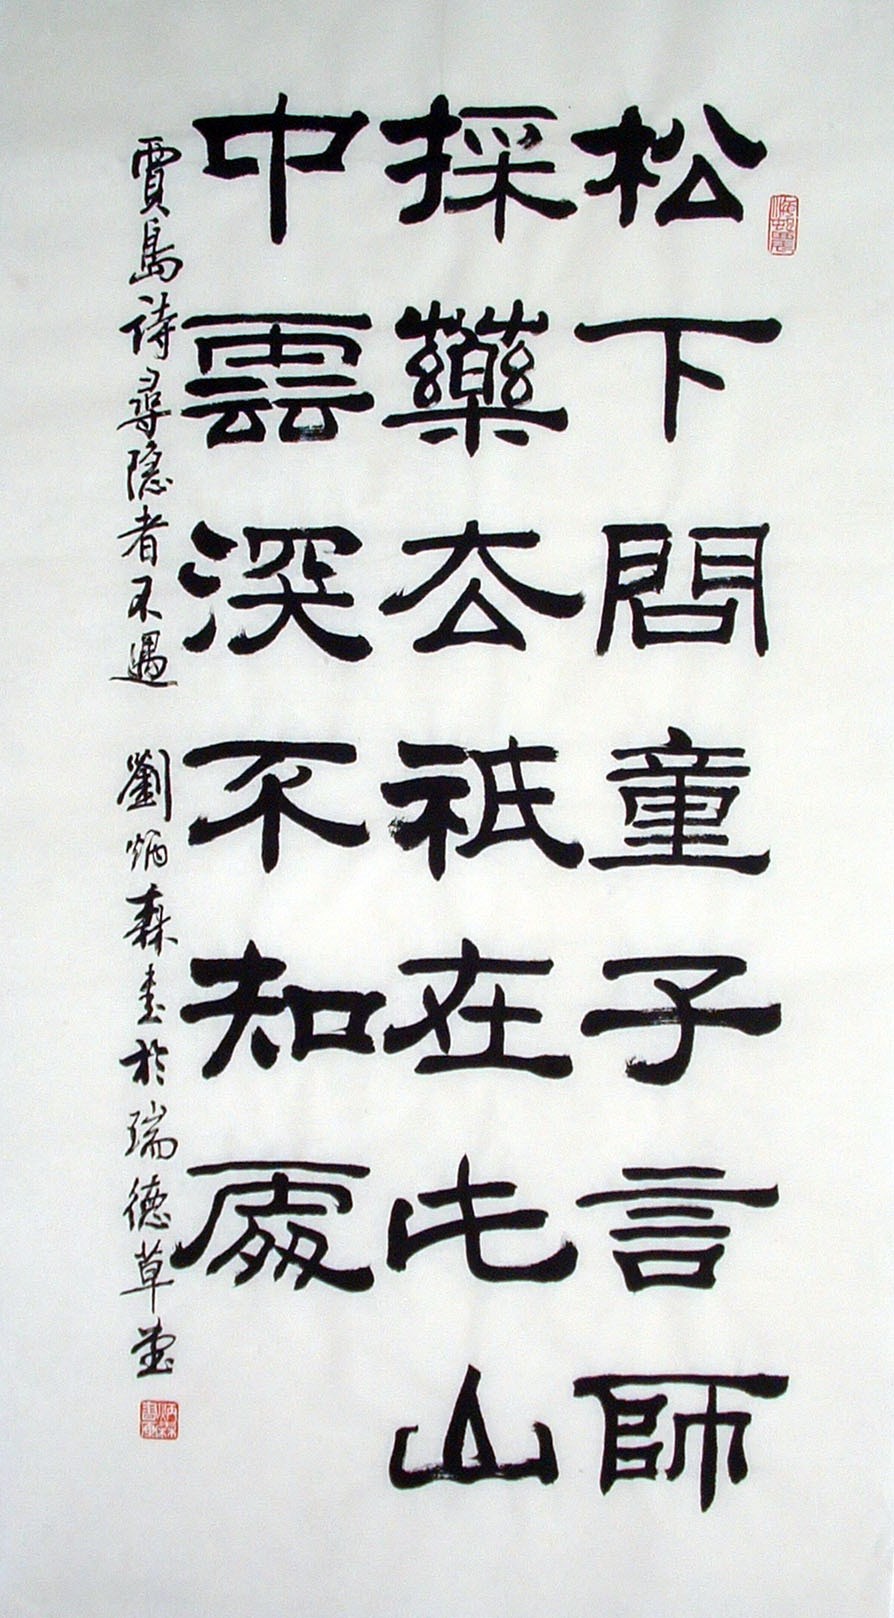 松下問童子言師
採藥去祇在此山
中雲深不知處
賈島詩尋隐者不遇 劉炳森書於瑞德草堂